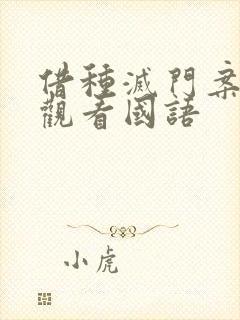 借種滅門案
觀看國語
小虎